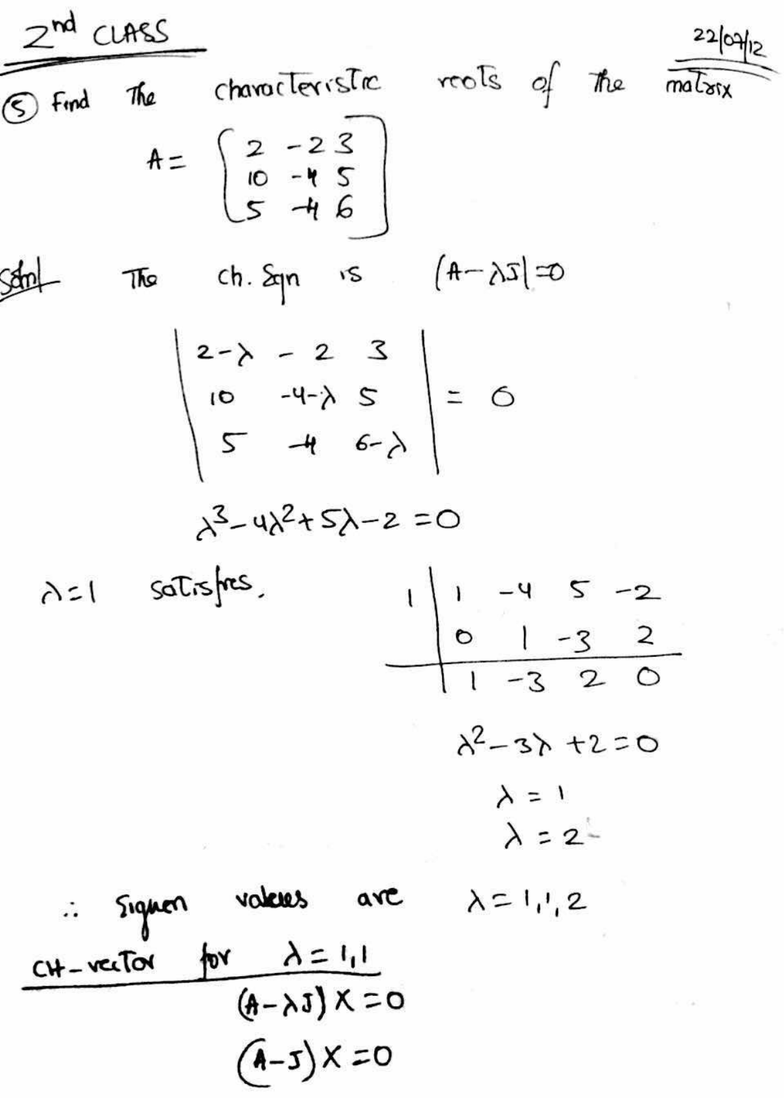 2nd CLASS
22/07/12
⑤ Find The characteristic roots of The matrix
A = [2 -2 3
10 -4 5
5 -4 6]
Soln/ The ch. Eqn is |A-λI|=0
|2-λ -2 3
10 -4-λ 5
5 -4 6-λ| = 0
λ³-4λ²+5λ-2=0
λ=1 satisfies.
1 | 1 -4 5 -2
0 1 -3 2
1 -3 2 0
λ²-3λ+2=0
λ = 1
λ = 2
∴ Eiguen values are λ=1,1,2
CH-vector for λ=1,1
(A-λI)X=0
(A-I)X=0